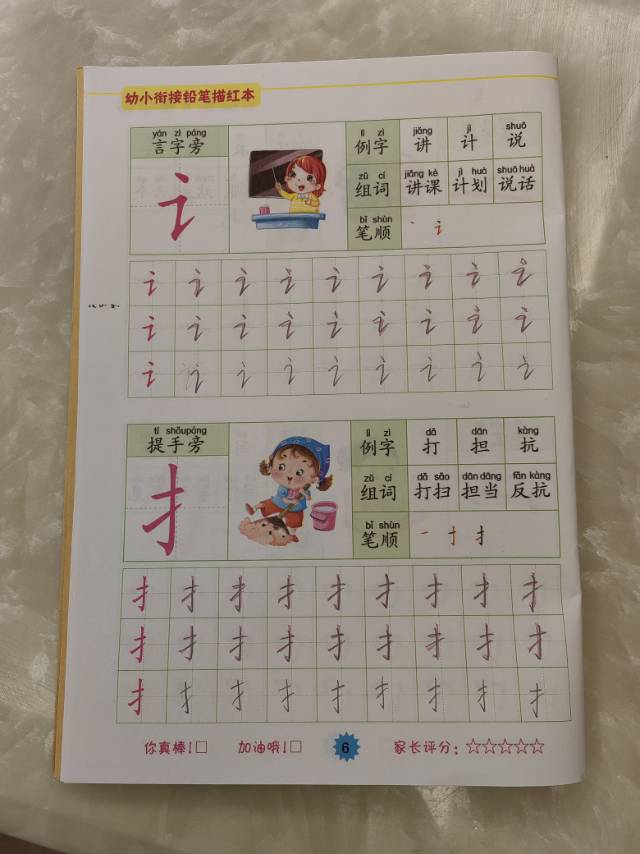 幼小衔接铅笔描红本
yán zì páng
言字旁
讠
lì zì
例字
jiǎng jì shuō
讲 计 说
zǔ cí
组词
jiǎng kè jì huà shuō huà
讲课 计划 说话
bǐ shùn
笔顺
丶 讠
讠 讠 讠 讠 讠 讠 讠 讠 讠
讠 讠 讠 讠 讠 讠 讠 讠 讠
讠 讠 讠 讠 讠 讠 讠 讠 讠
tí shǒu páng
提手旁
扌
lì zì
例字
dǎ dān kàng
打 担 抗
zǔ cí
组词
dǎ sǎo dān dāng fǎn kàng
打扫 担当 反抗
bǐ shùn
笔顺
一 十 扌
扌 扌 扌 扌 扌 扌 扌 扌 扌
扌 扌 扌 扌 扌 扌 扌 扌 扌
扌 扌 扌 扌 扌 扌 扌 扌 扌
你真棒!□ 加油哦!□ 6 家长评分:☆☆☆☆☆